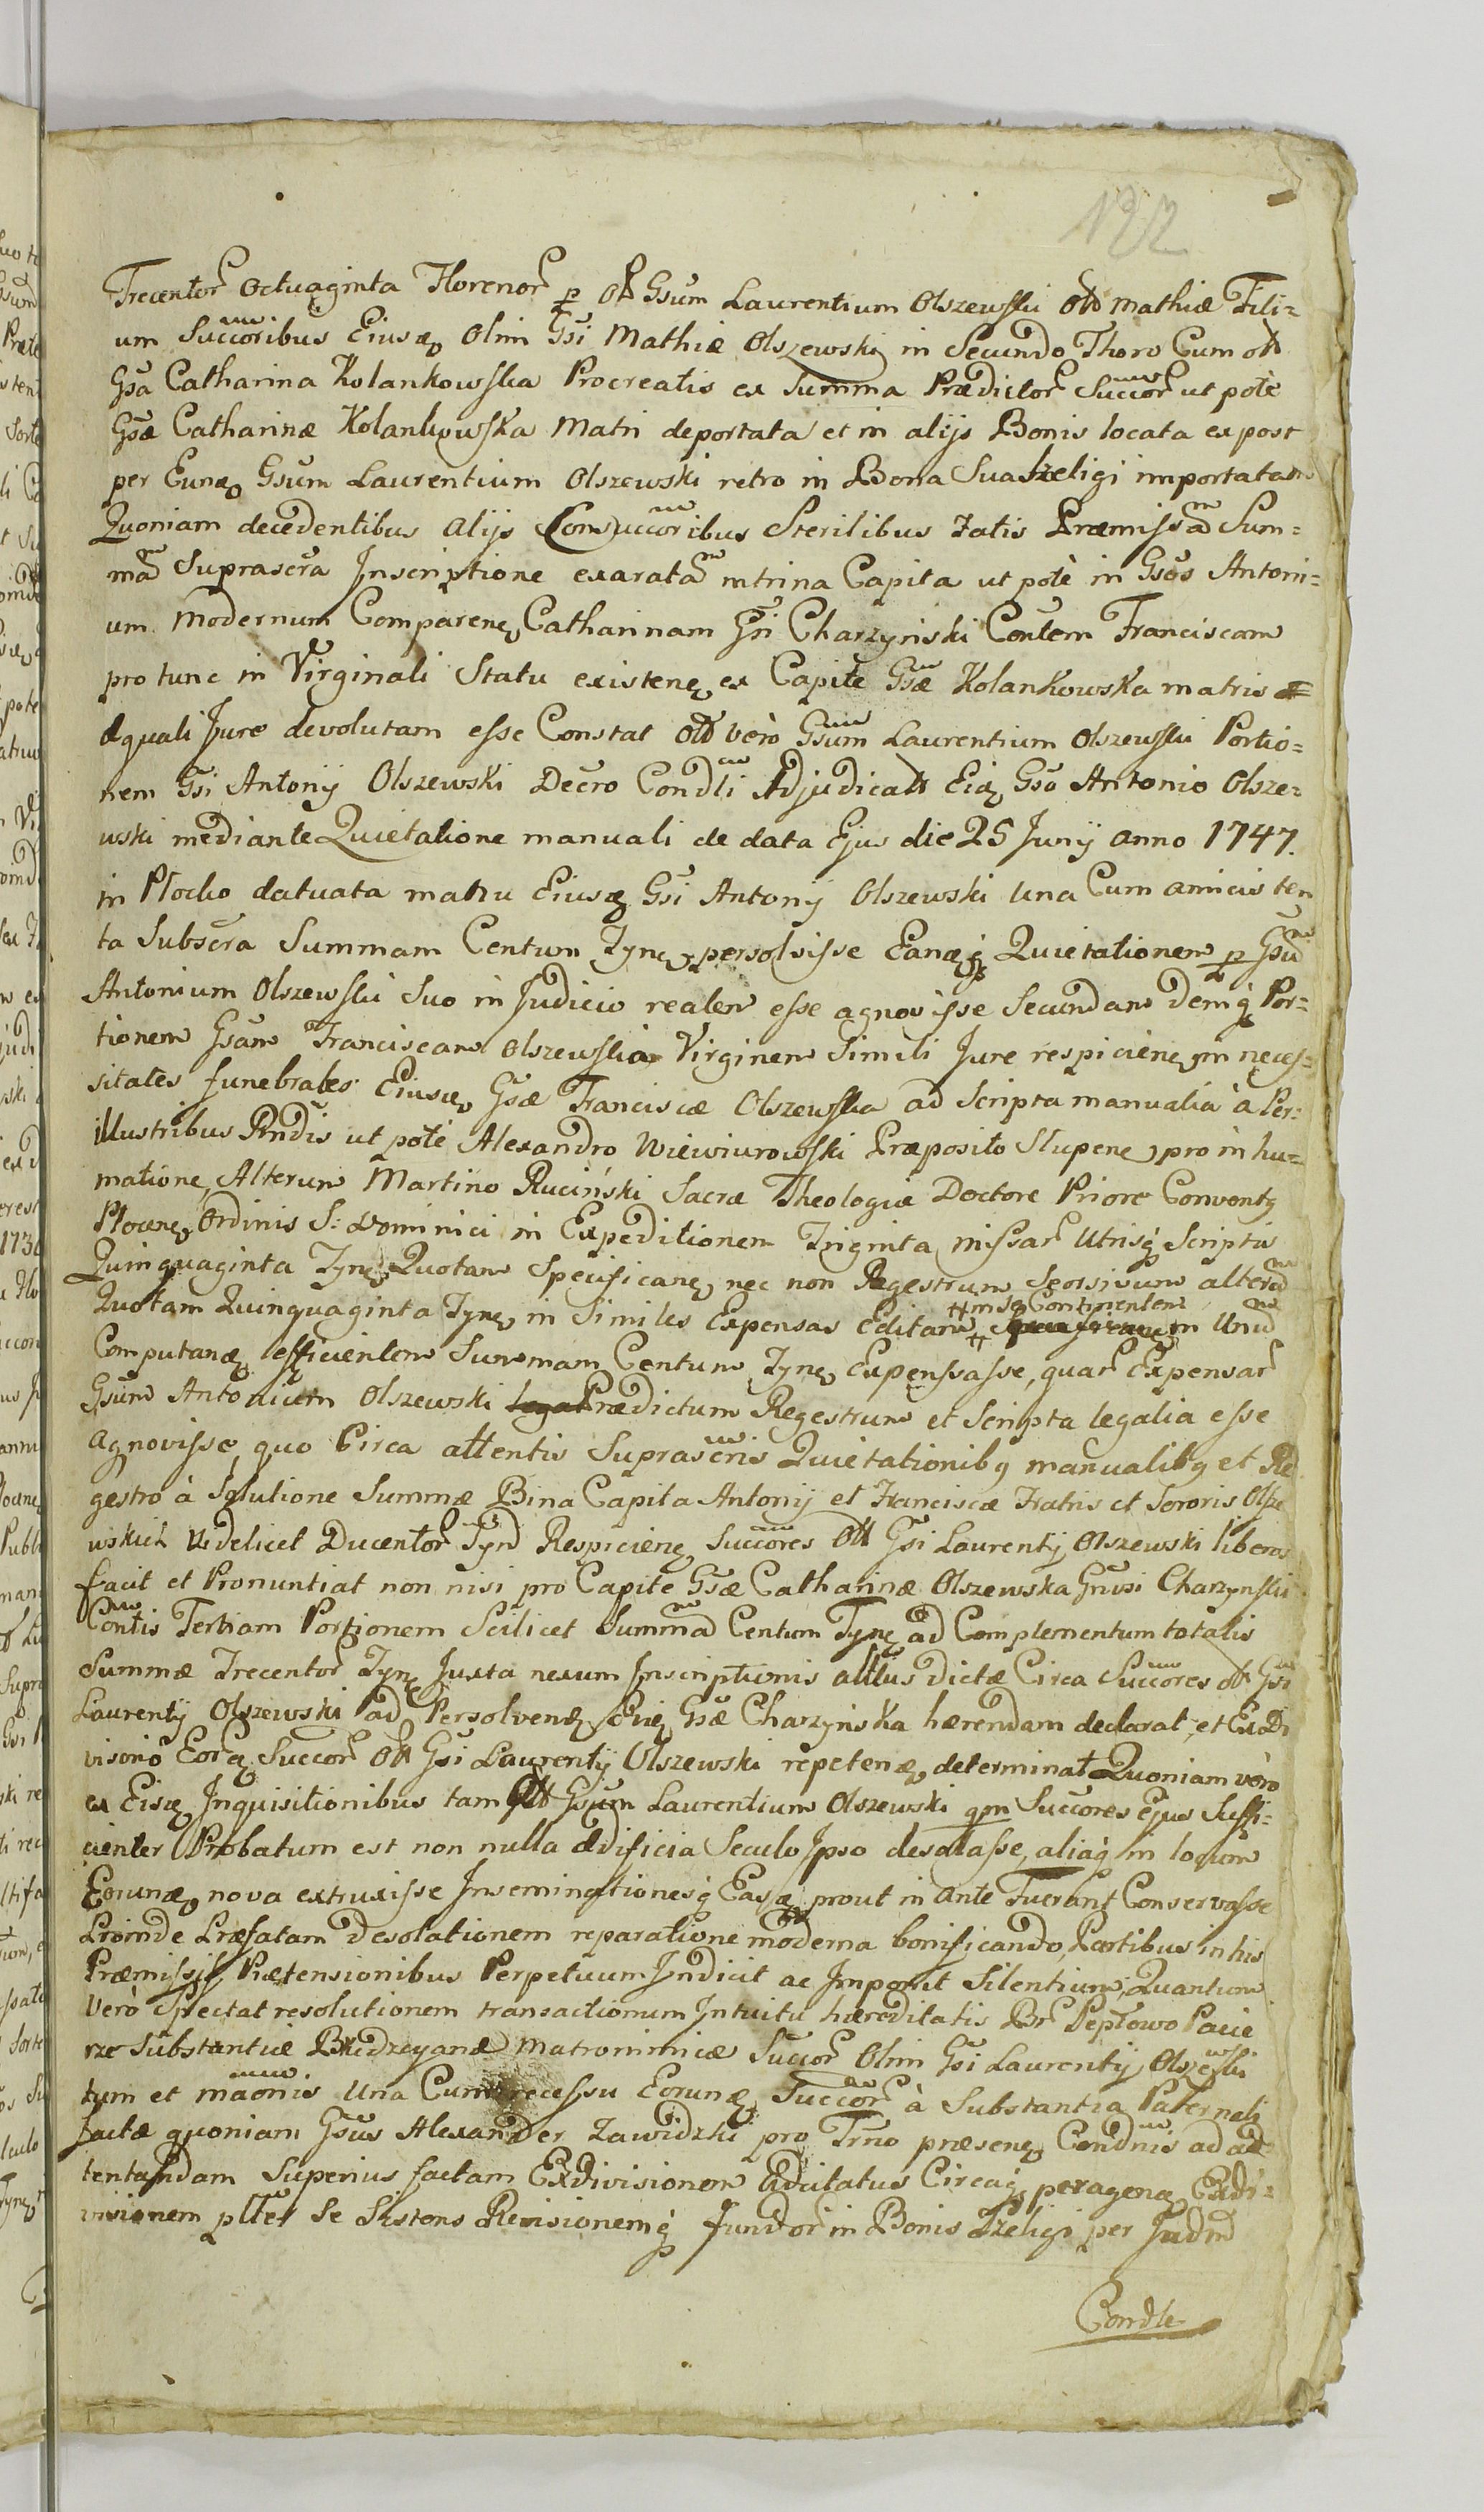 122
Trecentor Octuaginta Florenor p olt Gsum Laurentium Olszewski olt Mathiæ Fili=
um Succoribus Eiusq, Olim Gsi Mathiæ Olszewski in Secundo Thoro Cum olt
Gsa Catharina Kolankowska Procreatis ex Summa Prædictor Succor ut potè
Gsæ Catharinæ Kolankowska Matri deportata et in alijs Bonis locata ex post
per Eunq, Gsum Laurentium Olszewski retro in Bona Sua Szeligi importatam
Quoniam decedentibus alijs Consuccoribus Sterilibus Fatis Præmissa Sum=
ma Suprascra Inscriptione exarata in trina Capita ut potè in Gsos Antoni=
um Modernum Comparenq, Catharinam Gsi Charzyński Contem Franciscam
pro tunc in Virginali Statu existenq, ex Capite Gsæ Kolankowska matris
æquali Jure devolutam esse Constat olt verò Gsum Laurentium Olszewski Portio=
nem Gsi Antonij Olszewski Decro Condli Adjudicatt Eiq Gso Antonio Olsze=
wski mediante Quietatione manuali de data Ejus die 25 Junij anno 1747.
in Plocko manu Eiusq Gsi Antonij Olszewski una Cum amicis ten
ta Subscra Summam Centum Tynq, persolvisse Eanqq Quietationem p Gsu
Antonium Olszewski Suo in Judicio realem esse agnovisse Secundam demq Por=
tionem Gsam Franciscam Olszewska Virginem Simili Jure respicienq, in neces=
sitates funebrales Eiusq, Gsæ Franciscæ Olszewska ad Scripta manualia à Per=
illustribus Rndis ut potè Alexandro Wiewiurowski Præposito Slupenq pro in hu=
matione, Alterum Martino Ruciński Sacræ Theologiæ Doctore Priore Conventq
Plocenq, Ordinis S: Dominici in Expeditionem Triginta missar Utrisq Scripta
Quinquaginta Tynq, Quotam Specificanq, nec non Regestrum Seorsivum altera
in se Continentem
Quotam Quinquaginta Tynq, in Similes Expensas Editam in Unu
Computanq, efficientem Summam Centum Tynq, Expensasse, quar Expensar
Gsum Antonium Olszewski Prædictum Regestrum et Scripta legalia esse
agnovisse, quo Circa attentis Suprascris Quietationibq manualibq et Re
gestro à Solutione Summæ Bina Capita Antonij et Franciscæ Fratris et Sororis Olsze
wskich Videlicet Ducentor Tynq Respicienq Succores olt Gsi Laurentij Olszewski liberos
facit et Pronuntiat non nisi pro Capite Gsæ Catharinæ Olszewska Gnrosi Charzynski
Contis Tertiam Portionem Scilicet Summa Centum Tynq ad Complementum totalis
Summæ Trecentor Tynq Juxta nexum Inscriptionis altius dictæ Circa Succores olt Gsi
Laurentij Olszewski ad Persolvenq Eiq Gsæ Charzyńska hærendam declarat, et Ex Di
visorio Eorq Succor olt Gsi Laurentij Olszewski repetenq, determinat Quoniam verò
ex Eisq Inquisitionibus tam olt Gsum Laurentium Olszewski qm Succores Ejus Suffi=
cienter Probatum est non nulla ædificia Seculo Ipso desolasse, aliaq in locum
Eorunq, nova extruxisse Inseminationesq Easq prout in ante Fuerant Conservasse
Proinde Præfatam desolationem reparatione moderna bonificando, Partibus in his
Præmissis Prætensionibus Perpetuum Indicit ac Imponit Silentium, Quantum
Verò Spectat resolutionem transactionum Intuitu hæreditatis Br Pepłowo Pacie
rze Substantiæ Matronimicæ Succor Olim Gsi Laurentij Olszewski
tum et maonis Una Cum recessu Eorunq Succor à Substantia Paternali
factæ quoniam Gsus Alexander Zawidzki pro Trno præsenq Condnis ad at
tentandam Superius factam Exdivisionem Aditatus Circaq peragenq Exdi=
visionem pltter Se Sistens Revisionemq fundor in Bonis Szeligi per Judm
Condle